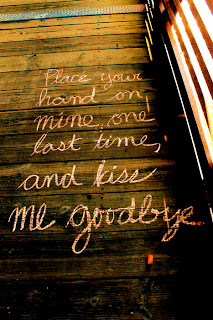 Place your
hand on
mine, one
last time,
and kiss
me goodbye